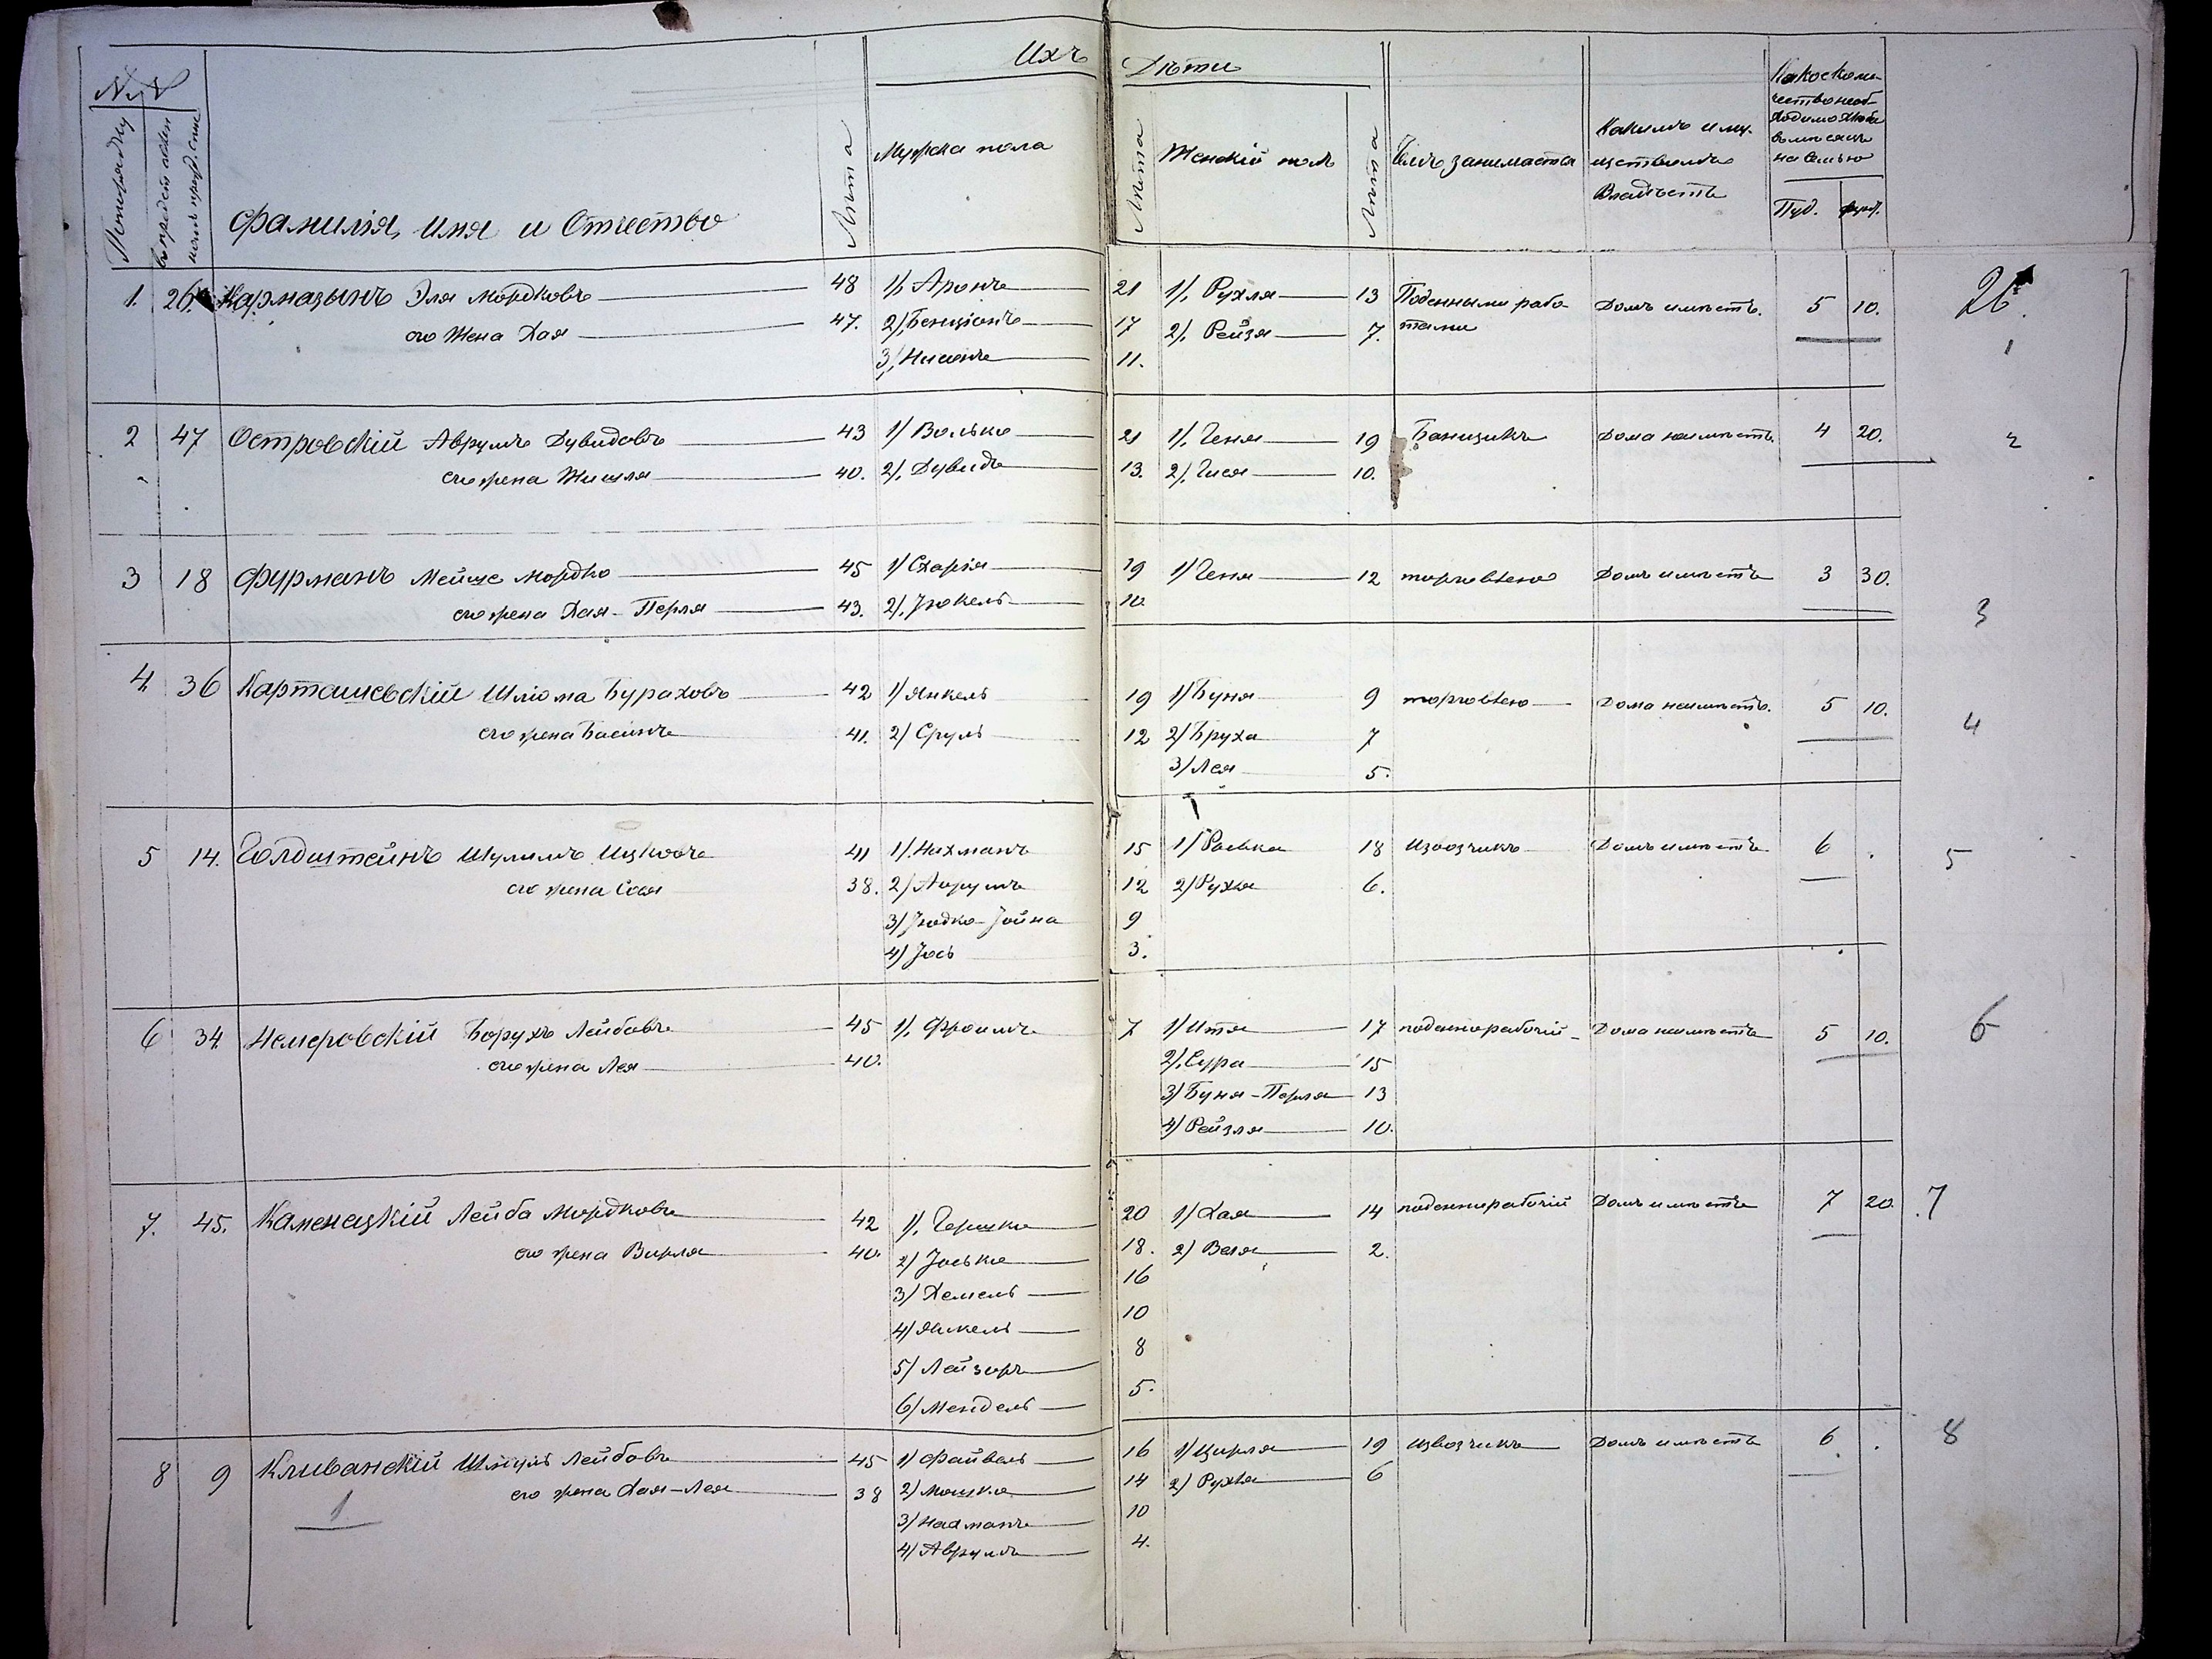 Ихъ Дѣти
№№
По порядку
Фамилія, имя и Отчество
Лѣта
Мужска пола
Лѣта
Женскій полъ
Лѣта
Чѣмъ занимается
Какимъ иму-
ществомъ
Владѣетъ
Какое коли-
чество необ-
ходимо хлѣба
въ мѣсяцъ
на Семью
Пуд. фунт.
1. 26. Кармазынъ Эля Мордковъ 48 1/, Аронъ 21 1/, Рухля 13 Поденными рабо- Домъ имѣетъ. 5 10. 26.
его Жена Хая 47. 2/, Бенціонъ 17 2/, Рейзя 7. тами 1
3/, Нисонъ 11.
2 47 Островскій Аврумъ Дувидовъ 43 1/ Волько 21 1/, Геня 19 Банщикъ Дома неимѣетъ. 4 20. 2
его жена Жисля 40. 2/, Дувидъ 13. 2/, Гися 10.
3 18 Фурманъ Мейше Мордко 45 1/ Схарія 19 1/ Геня 12 торговлею Домъ имѣетъ 3 30.
его жена Хая-Перля 43. 2/, Іюкель 10. 3
4 36 Карташевскій Шліома Бураховъ 42 1/ Янкель 19 1/ Буня 9 торговлею Дома неимѣетъ. 5 10. 4
его жена 41. 2/ Сруль 12 2/ Бруха 7
3/ Лея 5.
5 14. Голдштейнъ Шулимъ Ицковъ 41 1/. Нахманъ 15 1/ Ривка 18 Извозчикъ Домъ имѣетъ 6 . 5
его жена Сося 38. 2/ Аврумъ 12 2/ Рухля 6.
3/ Іюдко-Іойна 9
4/ Іось 3.
6 34. Немеровскій Борухъ Лейбовъ 45 1/, Фроимъ 7 1/ Итя 17 поденнорабочій Дома неимѣетъ 5 10. 6
его жена Лея 40. 2/, Сура 15
3/ Буня-Перля 13
4/ Рейзля 10.
7. 45. Каменецкій Лейба Мордковъ 42 1/, Гершко 20 1/ Хая 14 поденнорабочій Домъ имѣетъ 7 20. 7
его жена Вирля 40. 2/ Іосько 18. 2/ Веля 2.
3/ Хемель 16
4/ Янкель 10
5/ Лейзоръ 8
6/ Мендель 5.
8 9 Кливанскій Шмуль Лейбовъ 45 1/ Файвель 16 1/ Цирля 19 извозчикъ Домъ имѣетъ 6 . 8
его жена Хая-Лея 38 2/ Мошко 14 2/ Рухля 6
1 3/ Нахманъ 10
4/ Аврумъ 4.